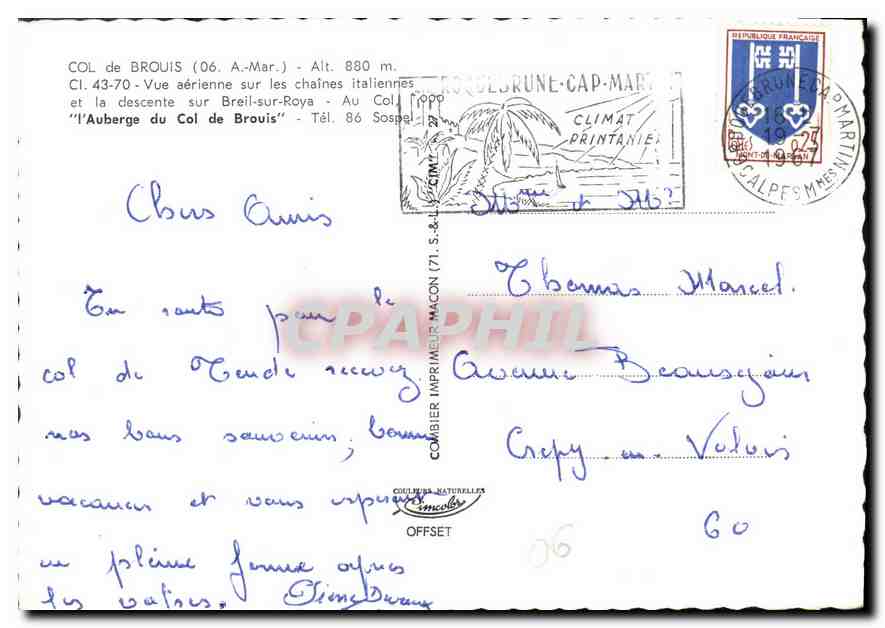 COL de BROUIS (06. A.-Mar.) - Alt. 880 m.
CI. 43-70 - Vue aérienne sur les chaînes italiennes
et la descente sur Breil-sur-Roya - Au Col, 1000
"l'Auberge du Col de Brouis" - Tél. 86 Sospel
ROQUEBRUNE-CAP-MARTIN
CLIMAT
PRINTANIER
REPUBLIQUE FRANÇAISE
0,25
MONT-DE-MARSAN
ROQUEBRUNE CAP MARTIN
16
19-7
1967
ALPES MMES
Chers Amis
En route pour le
col de Tende recevez
nos bons souvenirs, bonnes
vacances et vous espérant
en pleine forme après
les valises. Pierre
Mme et Mr
Thomas Marcel.
Avenue Beauséjour
Crepy-en-Valois
60
COMBIER IMPRIMEUR MACON (71. S.-&-L.) "CIM"
COULEURS NATURELLES
Cimcolor
OFFSET
06
CPAPHIL